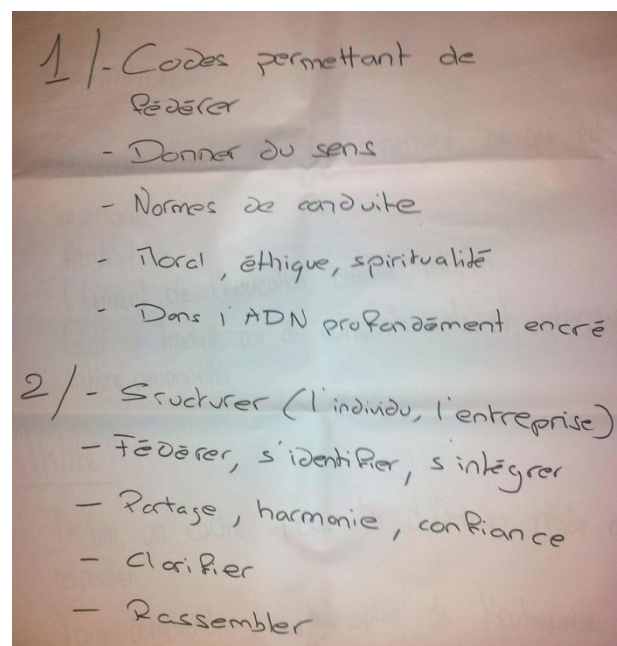 1/- Codes permettant de
fédérer
- Donner du sens
- Normes de conduite
- Moral, éthique, spiritualité
- Dans l'ADN profondément encré
2/- Structurer (l'individu, l'entreprise)
- Fédérer, s'identifier, s'intégrer
- Partage, harmonie, confiance
- Clarifier
- Rassembler